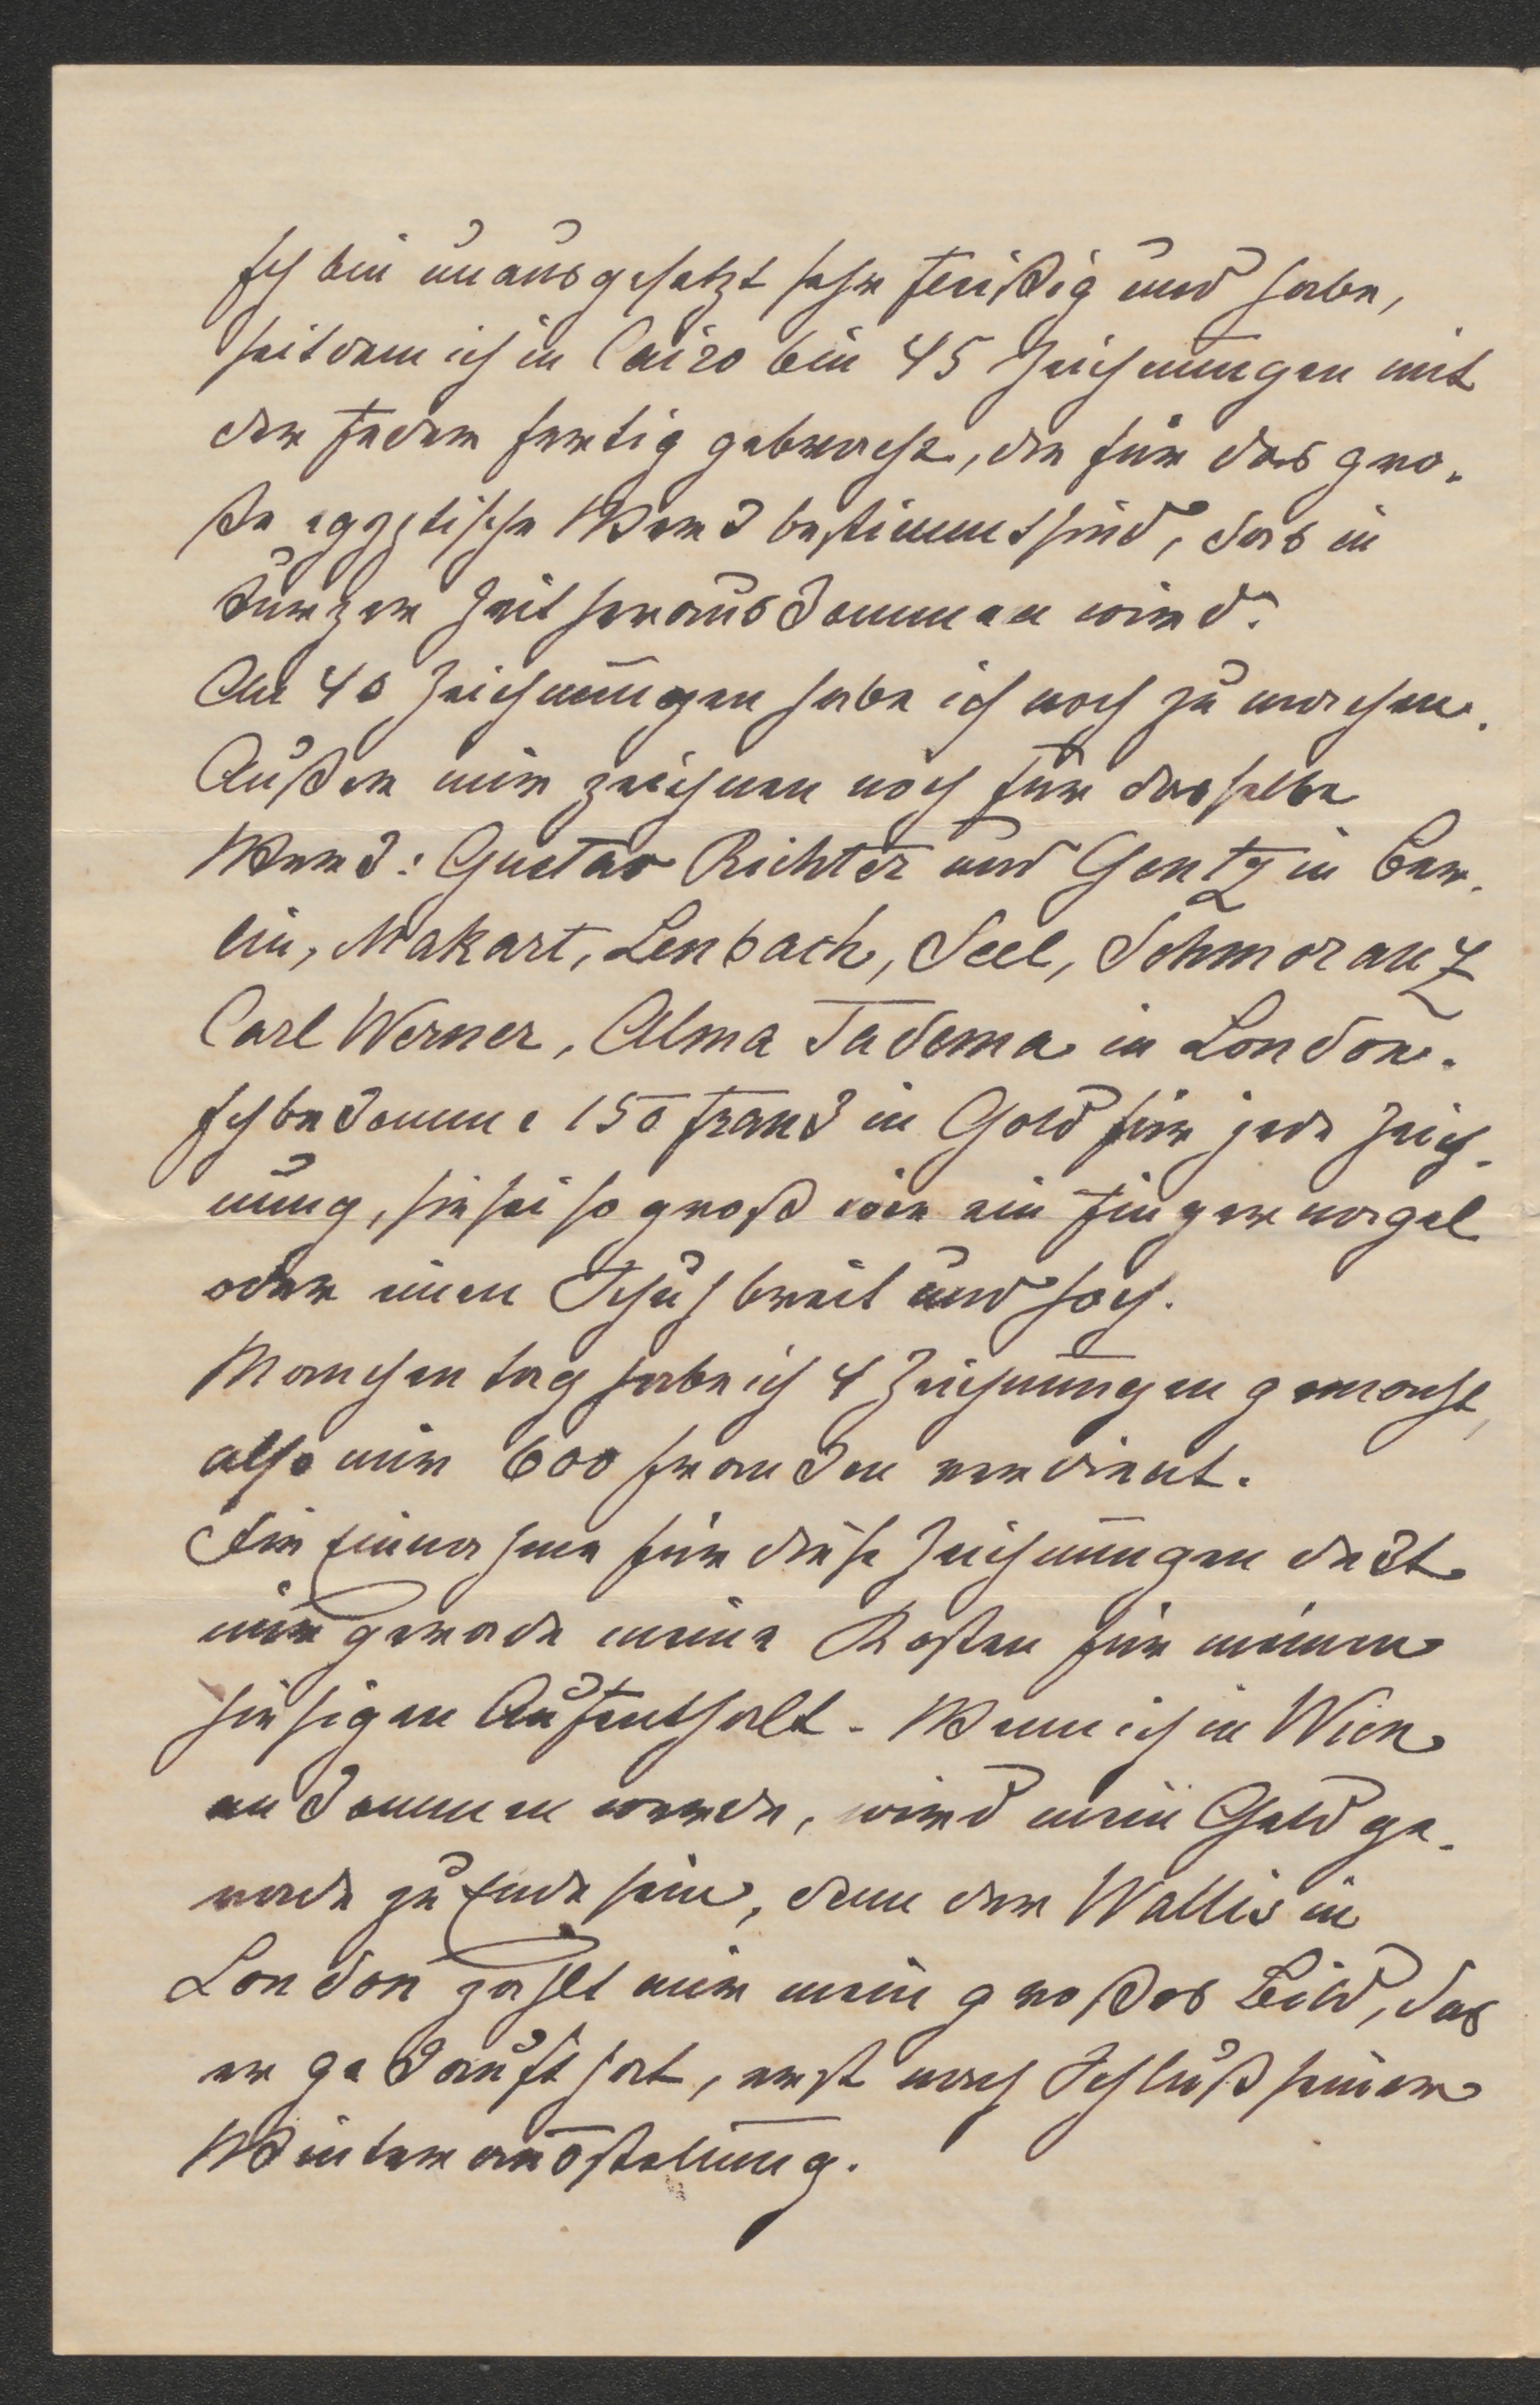 Ich bin unausgesetzt sehr fleißig und habe,
seitdem ich in Cairo bin 45 Zeichnungen mit
der Feder fertig gebracht, die für das gro-
ße egyptische Werk bestimmt sind, das in
kurzer Zeit herauskommen wird.
An 40 Zeichnungen habe ich noch zu machen.
Außer mir zeichnen noch für dasselbe
Werk: Gustav Richter und Gentz in Ber-
lin, Makart, Lenbach, Seel, Schmoranz
Carl Werner, Alma Tadema in London.
Ich bekomme 150 Frank in Gold für jede Zeich-
nung, sie sei so groß wie ein Fingernagel
oder einen Schuh breit und hoch.
Manchen Tag habe ich 4 Zeichnungen gemacht,
also mir 600 Franken verdient.
Die Einnahme für diese Zeichnungen dekt
mir gerade meine Kosten für meinen
hiesigen Aufenthalt. Wenn ich in Wien
ankommen werde, wird mein Geld ge-
rade zu Ende sein, denn der Wallis in
London zahlt mir mein großes Bild, das
er gekauft hat, erst nach Schluß seiner
Winterausstellung.